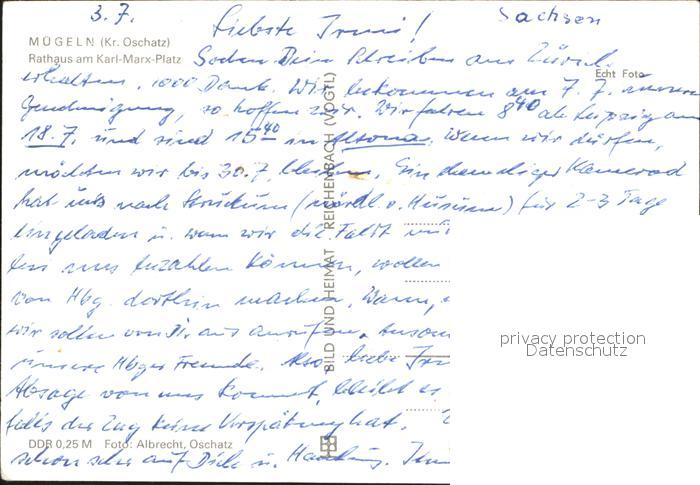 3. 7.
Sachsen
Liebste Irmi!
MÜGELN (Kr. Oschatz)
Rathaus am Karl-Marx-Platz
Soeben Dein Schreiben aus Zürich
Echt Foto
erhalten, 1000 Dank. Wir bekommen am 7. 7. unsere
Genehmigung, so hoffen wir. Wir fahren 8⁴⁰ ab Leipzig am
18. 7. und sind 15⁴⁰ in Altona. Wenn wir dürfen,
möchten wir bis 30. 7. bleiben. Ein ehemaliger Kamerad
hat uns nach Struckum (nördl. v. Husum) für 2-3 Tage
eingeladen u. wenn wir die Fahrt
uns bezahlen können, wollen
von Hbg. dorthin machen. Wann,
wir sollen von Dir aus anrufen.
unsere Hbger Freunde. Also liebe
Absage von uns kommt, bleibt es
falls der Zug keine Verspätung hat.
DDR 0,25 M Foto: Albrecht, Oschatz
schon sehr auf Dich u. Hamburg.
BILD UND HEIMAT REICHENBACH (VOGTL)
privacy protection
Datenschutz